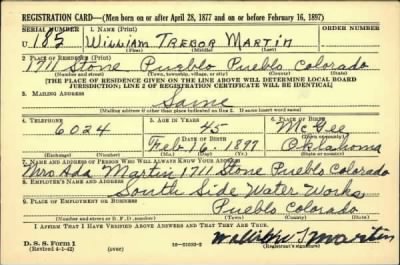 REGISTRATION CARD—(Men born on or after April 28, 1877 and on or before February 16, 1897)
SERIAL NUMBER 1. NAME (Print) ORDER NUMBER
U 185 William Trebor Martin
(First) (Middle) (Last)
2. PLACE OF RESIDENCE (Print)
1711 Stone Pueblo Pueblo Colorado
(Number and street) (Town, township, village, or city) (County) (State)
[THE PLACE OF RESIDENCE GIVEN ON THE LINE ABOVE WILL DETERMINE LOCAL BOARD
JURISDICTION; LINE 2 OF REGISTRATION CERTIFICATE WILL BE IDENTICAL]
3. MAILING ADDRESS
Same
(Mailing address if other than place indicated on line 2. If same insert word same)
4. TELEPHONE 5. AGE IN YEARS 6. PLACE OF BIRTH
6024 45 McGee
DATE OF BIRTH (Town or county)
Feb 16. 1897 Oklahoma
(Exchange) (Number) (Mo.) (Day) (Yr.) (State or country)
7. NAME AND ADDRESS OF PERSON WHO WILL ALWAYS KNOW YOUR ADDRESS
Mrs Ada Martin 1711 Stone Pueblo Colorado
8. EMPLOYER'S NAME AND ADDRESS
South Side Water Works
9. PLACE OF EMPLOYMENT OR BUSINESS
Pueblo Colorado
(Number and street or R. F. D. number) (Town) (County) (State)
I AFFIRM THAT I HAVE VERIFIED ABOVE ANSWERS AND THAT THEY ARE TRUE.
D. S. S. Form 1
(Revised 4-1-42) (over) William T Martin
(Registrant's signature)